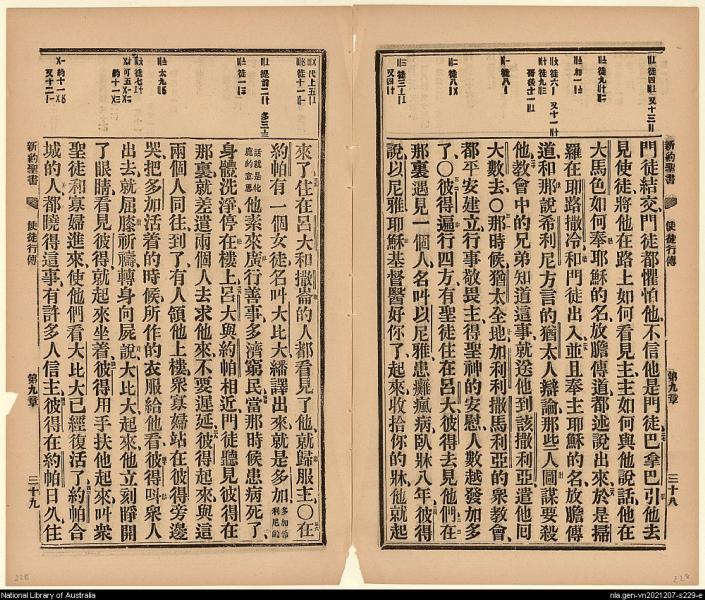 新約聖書
使徒行傳
第九章
三十八
門徒結交、門徒都懼怕他、不信他是門徒、巴拿巴引他去
見使徒、將他在路上如何看見主、主如何與他說話、他在
大馬色如何奉耶穌的名放膽傳道、都述說出來、於是掃
羅在耶路撒冷和門徒出入、並且奉主耶穌的名放膽傳
道、和那說希利尼方言的猶太人辯論、那些人圖謀要殺
他、教會中的兄弟知道這事、就送他到該撒利亞、遣他回
大數去、○那時候猶太全地、加利利、撒馬利亞的眾教會、
都平安建立、行事敬畏主、得聖神的安慰、人數越發加多
了、○彼得遍行四方、有聖徒住在呂大、彼得去見他們、在
那裏遇見一個人、名叫以尼雅、患癱瘋病、臥牀八年、彼得
說、以尼雅、耶穌基督醫好你了、起來收拾你的牀、他就起
來了、住在呂大和撒崙的人、都看見了他、就歸服主、○在
約帕有一個女徒、名叫大比大、繙譯出來、就是多加、多加希利尼的
話就是化鹿的意思他素來廣行善事、多濟窮民、當那時候患病死了、
身體洗淨、停在樓上、呂大與約帕相近、門徒聽見彼得在
那裏、就差遣兩個人去、求他來不要遲延、彼得起來、與這
兩個人同往、到了、有人領他上樓、眾寡婦站在彼得旁邊
哭、把多加活着的時候所作的衣服給他看、彼得叫眾人
出去、就屈膝祈禱、轉身向屍說、大比大起來、他立刻睜開
了眼睛、看見彼得就起來坐着、彼得用手扶他起來、叫眾
聖徒和寡婦進來、使他們看大比大已經復活了、約帕合
城的人都曉得這事、有許多人信主、彼得在約帕日久、住
新約聖書
使徒行傳
第九章
三十九
National Library of Australia
nla.gen-vn2021207-s229-e